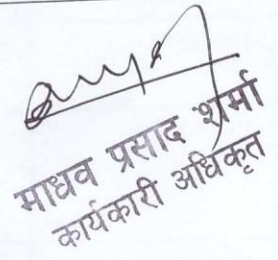 माधव प्रसाद शर्मा
कार्यकारी अधिकृत